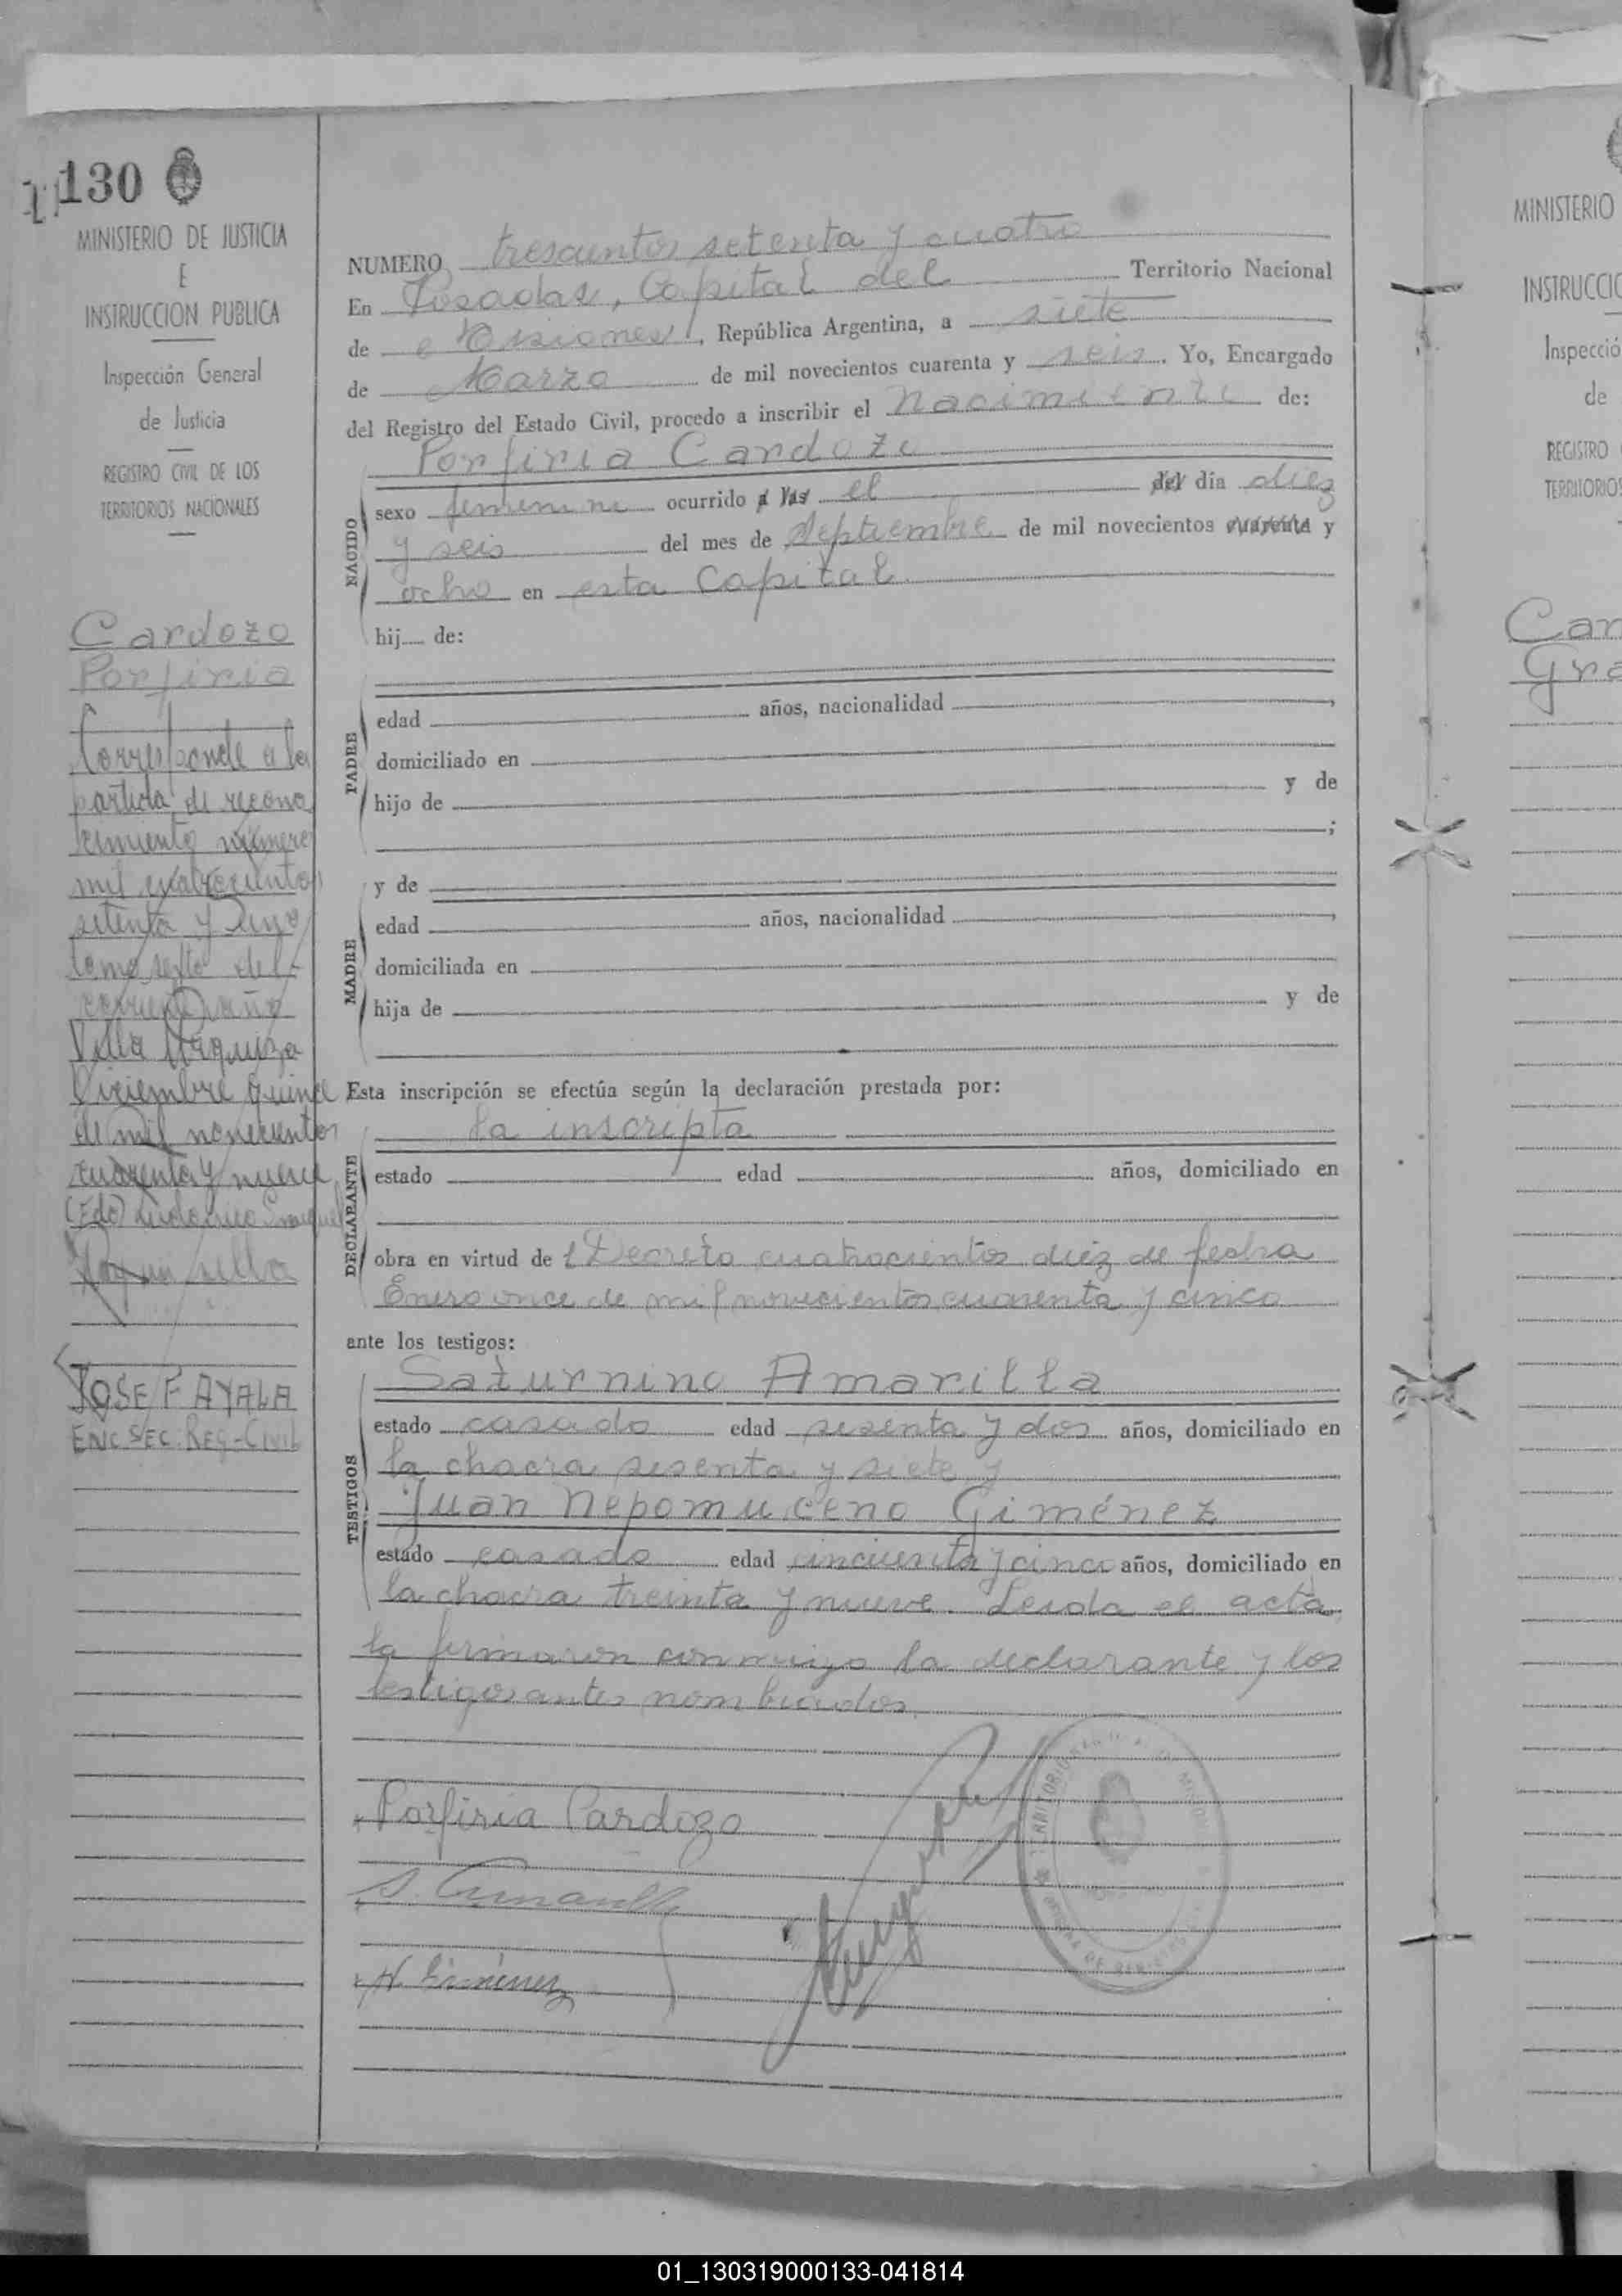 130
MINISTERIO DE JUSTICIA
E
INSTRUCCION PUBLICA
Inspección General
de Justicia
REGISTRO CIVIL DE LOS
TERRITORIOS NACIONALES
Cardozo
Porfiria
Corresponde a la
partida de recono
cimiento número
mil cuatrocientos
setenta y uno
tomo sexto del
corriente año
Villa Urquiza
Diciembre quince
de mil novecientos
cuarenta y nueve
(Fdo)
JOSE F AYALA
ENC. SEC. REG-CIVIL
NUMERO trescientos setenta y cuatro
En Posadas, Capital del Territorio Nacional
de Misiones, República Argentina, a siete
de Marzo de mil novecientos cuarenta y seis. Yo, Encargado
del Registro del Estado Civil, procedo a inscribir el nacimiento de:
Porfiria Cardozo
NACIDO
sexo femenino ocurrido a las el del día diez
y seis del mes de Septiembre de mil novecientos cuarenta y
ocho en esta Capital
hij de:
PADRE
edad años, nacionalidad ,
domiciliado en
hijo de y de
;
y de
MADRE
edad años, nacionalidad ,
domiciliada en
hija de y de
Esta inscripción se efectúa según la declaración prestada por:
la inscripta
DECLARANTE
estado edad años, domiciliado en
obra en virtud de l Decreto cuatrocientos diez de fecha
Enero once de mil novecientos cuarenta y cinco
ante los testigos:
Saturnino Amarilla
TESTIGOS
estado casado edad sesenta y dos años, domiciliado en
la chacra sesenta y siete y
Juan Nepomuceno Giménez
estado casado edad cincuenta y cinco años, domiciliado en
la chacra treinta y nueve. Leida el acta,
la firmaron conmigo la declarante y los
testigos antes nombrados.
Porfiria Cardozo
S. Amarilla
N. Giménez
MINISTERIO
INSTRUCCIO
Inspecció
de
REGISTRO
TERRITORIOS
Car
Gra
01_130319000133-041814